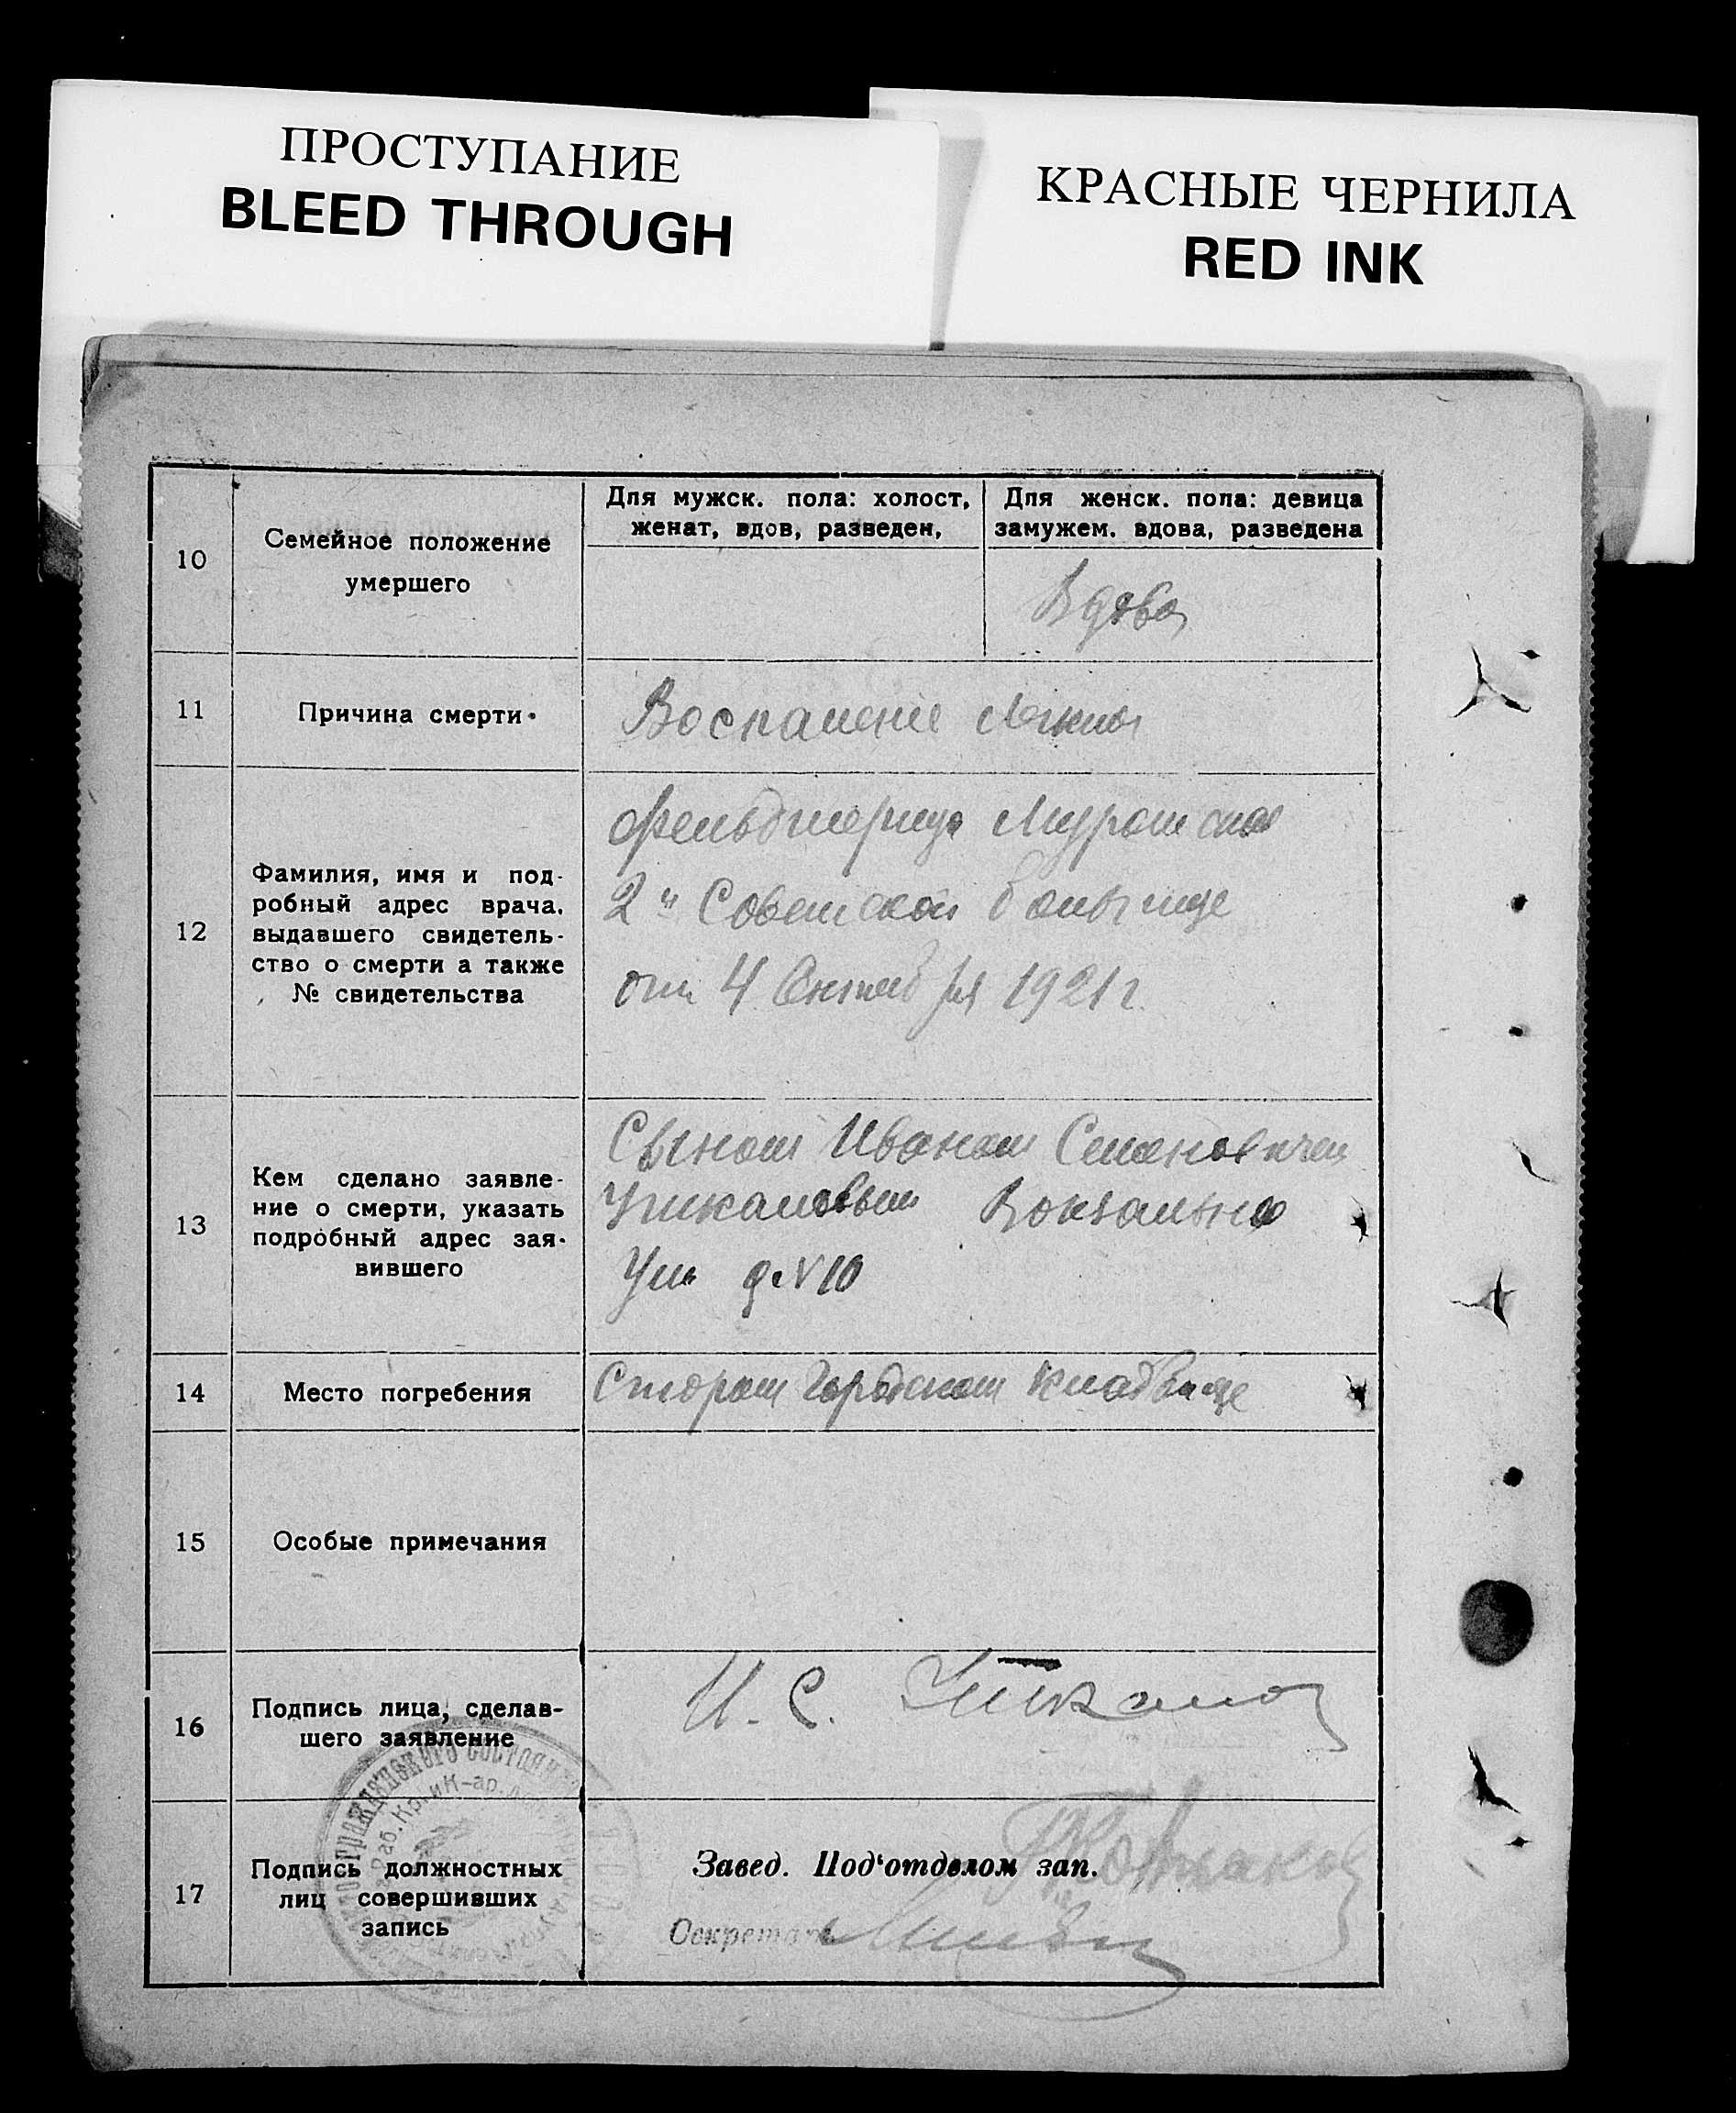 ПРОСТУПАНИЕ
BLEED THROUGH
КРАСНЫЕ ЧЕРНИЛА
RED INK
10
Семейное положение
умершего
Для мужск. пола: холост,
женат, вдов, разведен,
Для женск. пола: девица
замужем. вдова, разведена
Вдова
11
Причина смерти
Воспаление
12
Фамилия, имя и под-
робный адрес врача,
выдавшего свидетель-
ство о смерти а также
№ свидетельства
Фельдшерица
2й Советской больнице
от 4 Октября 1921 г.
13
Кем сделано заявле-
ние о смерти, указать
подробный адрес зая-
вившего
Сыном Иваном Семеновичем
Вокзальная
Ул. д. N 10
14
Место погребения
Старом Городском кладбище
15
Особые примечания
16
Подпись лица, сделав-
шего заявление
И. С.
17
Подпись должностных
лиц совершивших
запись
Завед. Под'отделом зап.
Секретарь